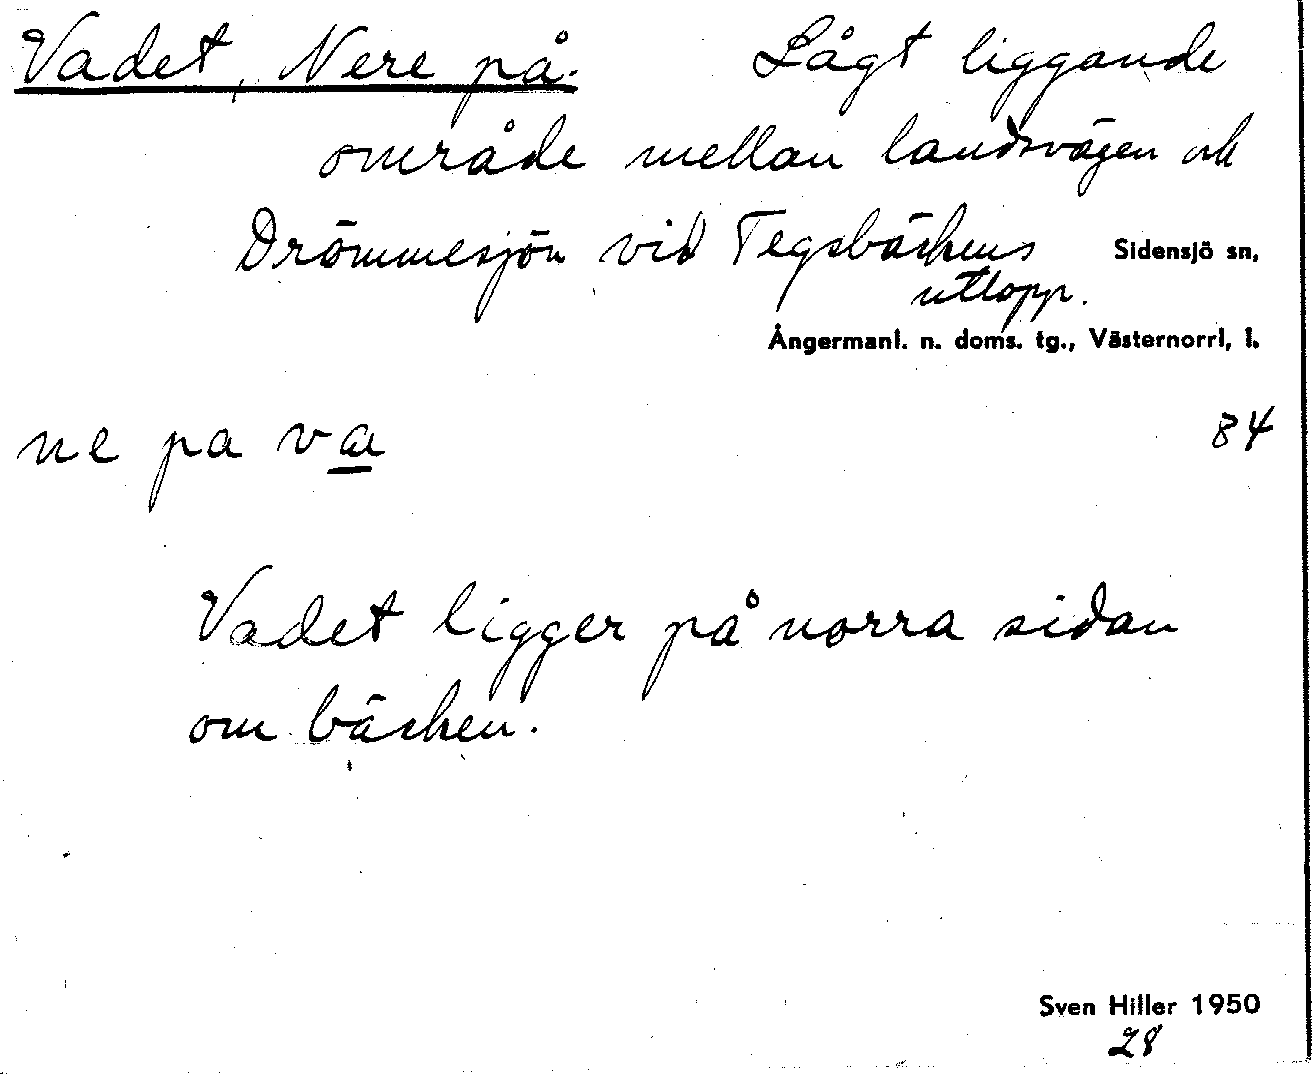 Vadet, Nere på. Lågt liggande
område mellan landsvägen och
Drömmesjön vid Tegsbäckens Sidensjö sn,
utlopp.
Ångermanl. n. doms. tg., Västernorrl, l.
ne pa va 84
Vadet ligger på norra sidan
om bäcken.
Sven Hiller 1950
28